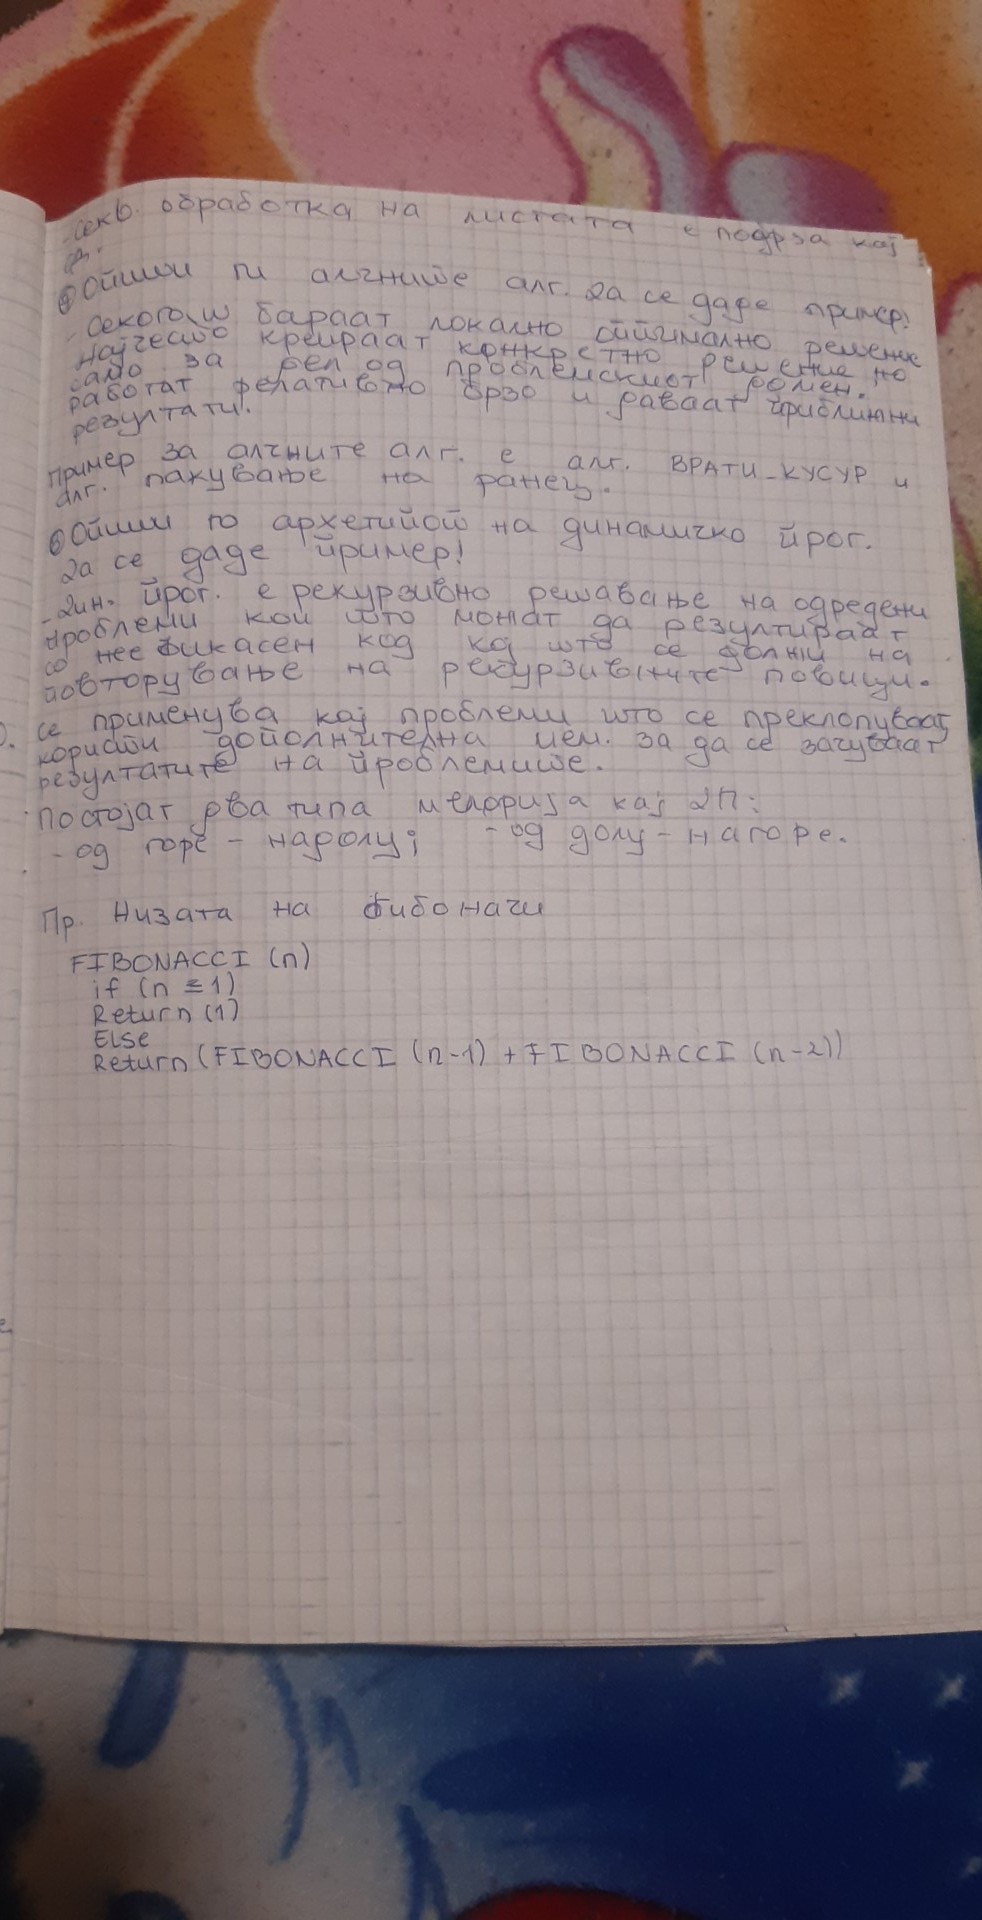 - секв. обработка на листата е подрза кај
ра.
⑤ Опиши ги алчните алг. Да се даде пример!
- Секогаш бараат локално оптимално решение
најчесто креираат конкретно решение но
само за дел од проблемскиот домен.
работат релативно брзо и даваат приближни
резултати.
Пример за алчните алг. е алг. ВРАТИ_КУСУР и
алг. пакување на ранец.
⑥ Опиши го архетипот на динамичко прог.
Да се даде пример!
- Дин. прог. е рекурзивно решавање на одредени
проблеми кои што можат да резултираат
со нее фикасен код кој што се должи на
повторување на рекурзивните повици.
се применува кај проблеми што се преклопуваат,
користи дополнителна мем. за да се зачуваат
резултатите на проблемите.
Постојат два типа меморија кај ДП:
- од горе - надолу; - од долу - нагоре.
Пр. Низата на Фибоначи
FIBONACCI (n)
if (n ≤ 1)
Return (1)
Else
Return (FIBONACCI (n-1) + FIBONACCI (n-2))